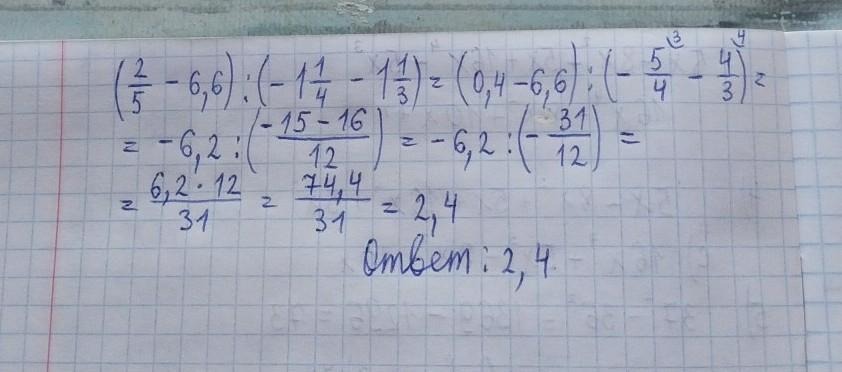 (2/5 - 6,6) : (-1 1/4 - 1 1/3) = (0,4 - 6,6) : (- 5/4 ³ - 4/3 ⁴) =
= -6,2 : (-15-16/12) = -6,2 : (- 31/12) =
= 6,2·12/31 = 74,4/31 = 2,4
Ответ: 2,4